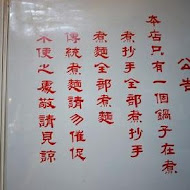 公告
本店只有一個鍋子在煮
煮抄手全部煮抄手
煮麵全部煮麵
傳統煮麵請勿催促
不便之處敬請見諒